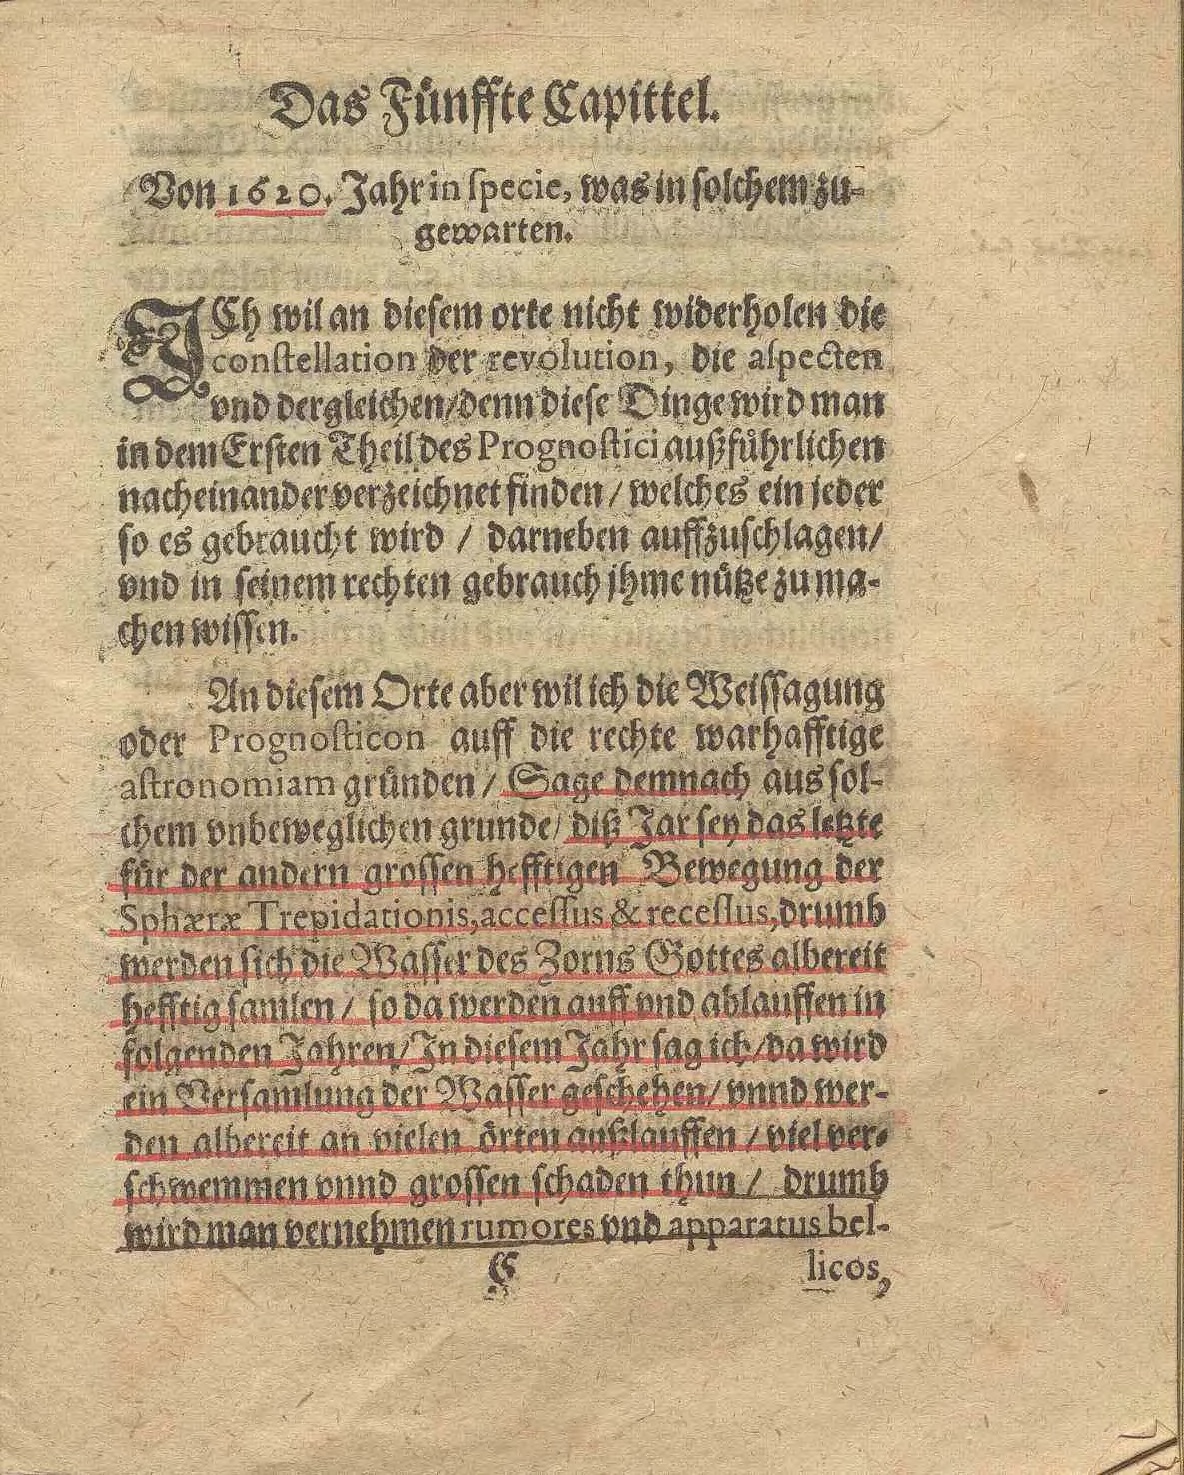 Das Fünffte Capittel.
Von 1620. Jahr in specie, was in solchem zu-
gewarten.
ICh wil an diesem orte nicht widerholen die
constellation der revolution, die aspecten
vnd dergleichen/denn diese Dinge wird man
in dem Ersten Theil des Prognostici außführlichen
nacheinander verzeichnet finden / welches ein jeder
so es gebraucht wird / darneben auffzuschlagen/
vnd in seinem rechten gebrauch jhme nütze zu ma-
chen wissen.
An diesem Orte aber wil ich die Weissagung
oder Prognosticon auff die rechte warhafftige
astronomiam gründen / Sage demnach aus sol-
chem vnbeweglichen grunde/ diß Jar sey das letzte
für der andern grossen hefftigen Bewegung der
Sphæræ Trepidationis, accessus & recessus, drumb
werden sich die Wasser des Zorns Gottes albereit
hefftig samlen / so da werden auff vnd ablauffen in
folgenden Jahren/ In diesem Jahr sag ich/da wird
ein Versamlung der Wasser geschehen/ vnnd wer-
den albereit an vielen örten außlauffen / viel ver-
schwemmen vnnd grossen schaden thun / drumb
wird man vernehmen rumores vnd apparatus bel-
C licos,